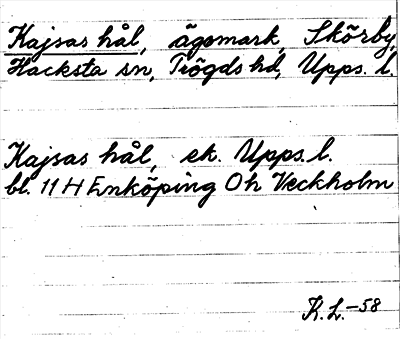 Kajsas hål, ägomark, Skörby,
Hacksta sn, Trögds hd, Upps. l.
Kajsas hål, ek. Upps. l.
bl. 11 H Enköping Oh Veckholm
R. L. -58